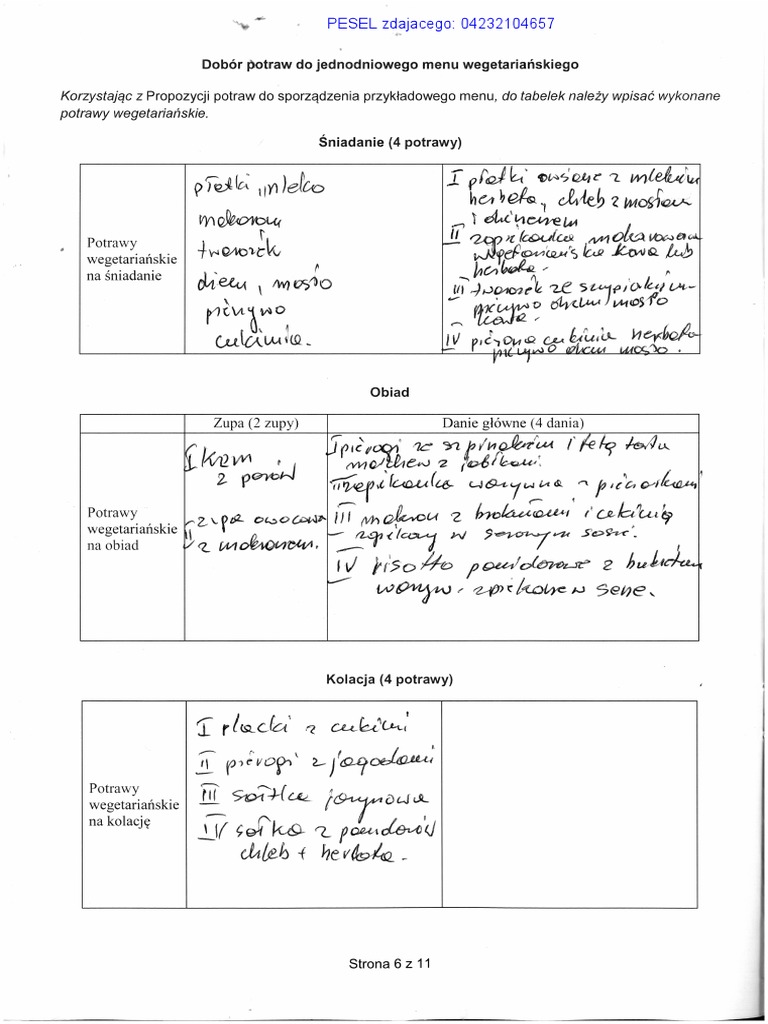 PESEL zdajacego: 04232104657
Dobór potraw do jednodniowego menu wegetariańskiego
Korzystając z Propozycji potraw do sporządzenia przykładowego menu, do tabelek należy wpisać wykonane
potrawy wegetariańskie.
Śniadanie (4 potrawy)
Potrawy
wegetariańskie
na śniadanie
płatki, mleko
makaron
twarożek
dżem, masło
pieczywo
cukinia.
I płatki owsiane z mlekiem
herbata, chleb z masłem
i dżemem
II zapiekanka makaronowa
wegetariańska kawa lub
herbata -
III twarożek ze szczypiorkiem
pieczywo dżem masło
kawa -
IV pieczona cukinia herbata
pieczywo dżem masło.
Obiad
Zupa (2 zupy)
Danie główne (4 dania)
Potrawy
wegetariańskie
na obiad
I krem
z porów
II zupa owocowa
z makaronem.
I pierogi ze szpinakiem i fetą tarta
marchew z jabłkami.
II zapiekanka warzywna z pieczarkami
III makaron z brokułami i cukinią
zapiekany w serowym sosie.
IV risotto pomidorowe z bukietem
warzyw - zapiekane w serze.
Kolacja (4 potrawy)
Potrawy
wegetariańskie
na kolację
I placki z cukini
II pierogi z jagodami
III sałatka jarzynowa
IV sałatka z pomidorów
chleb + herbata -
Strona 6 z 11